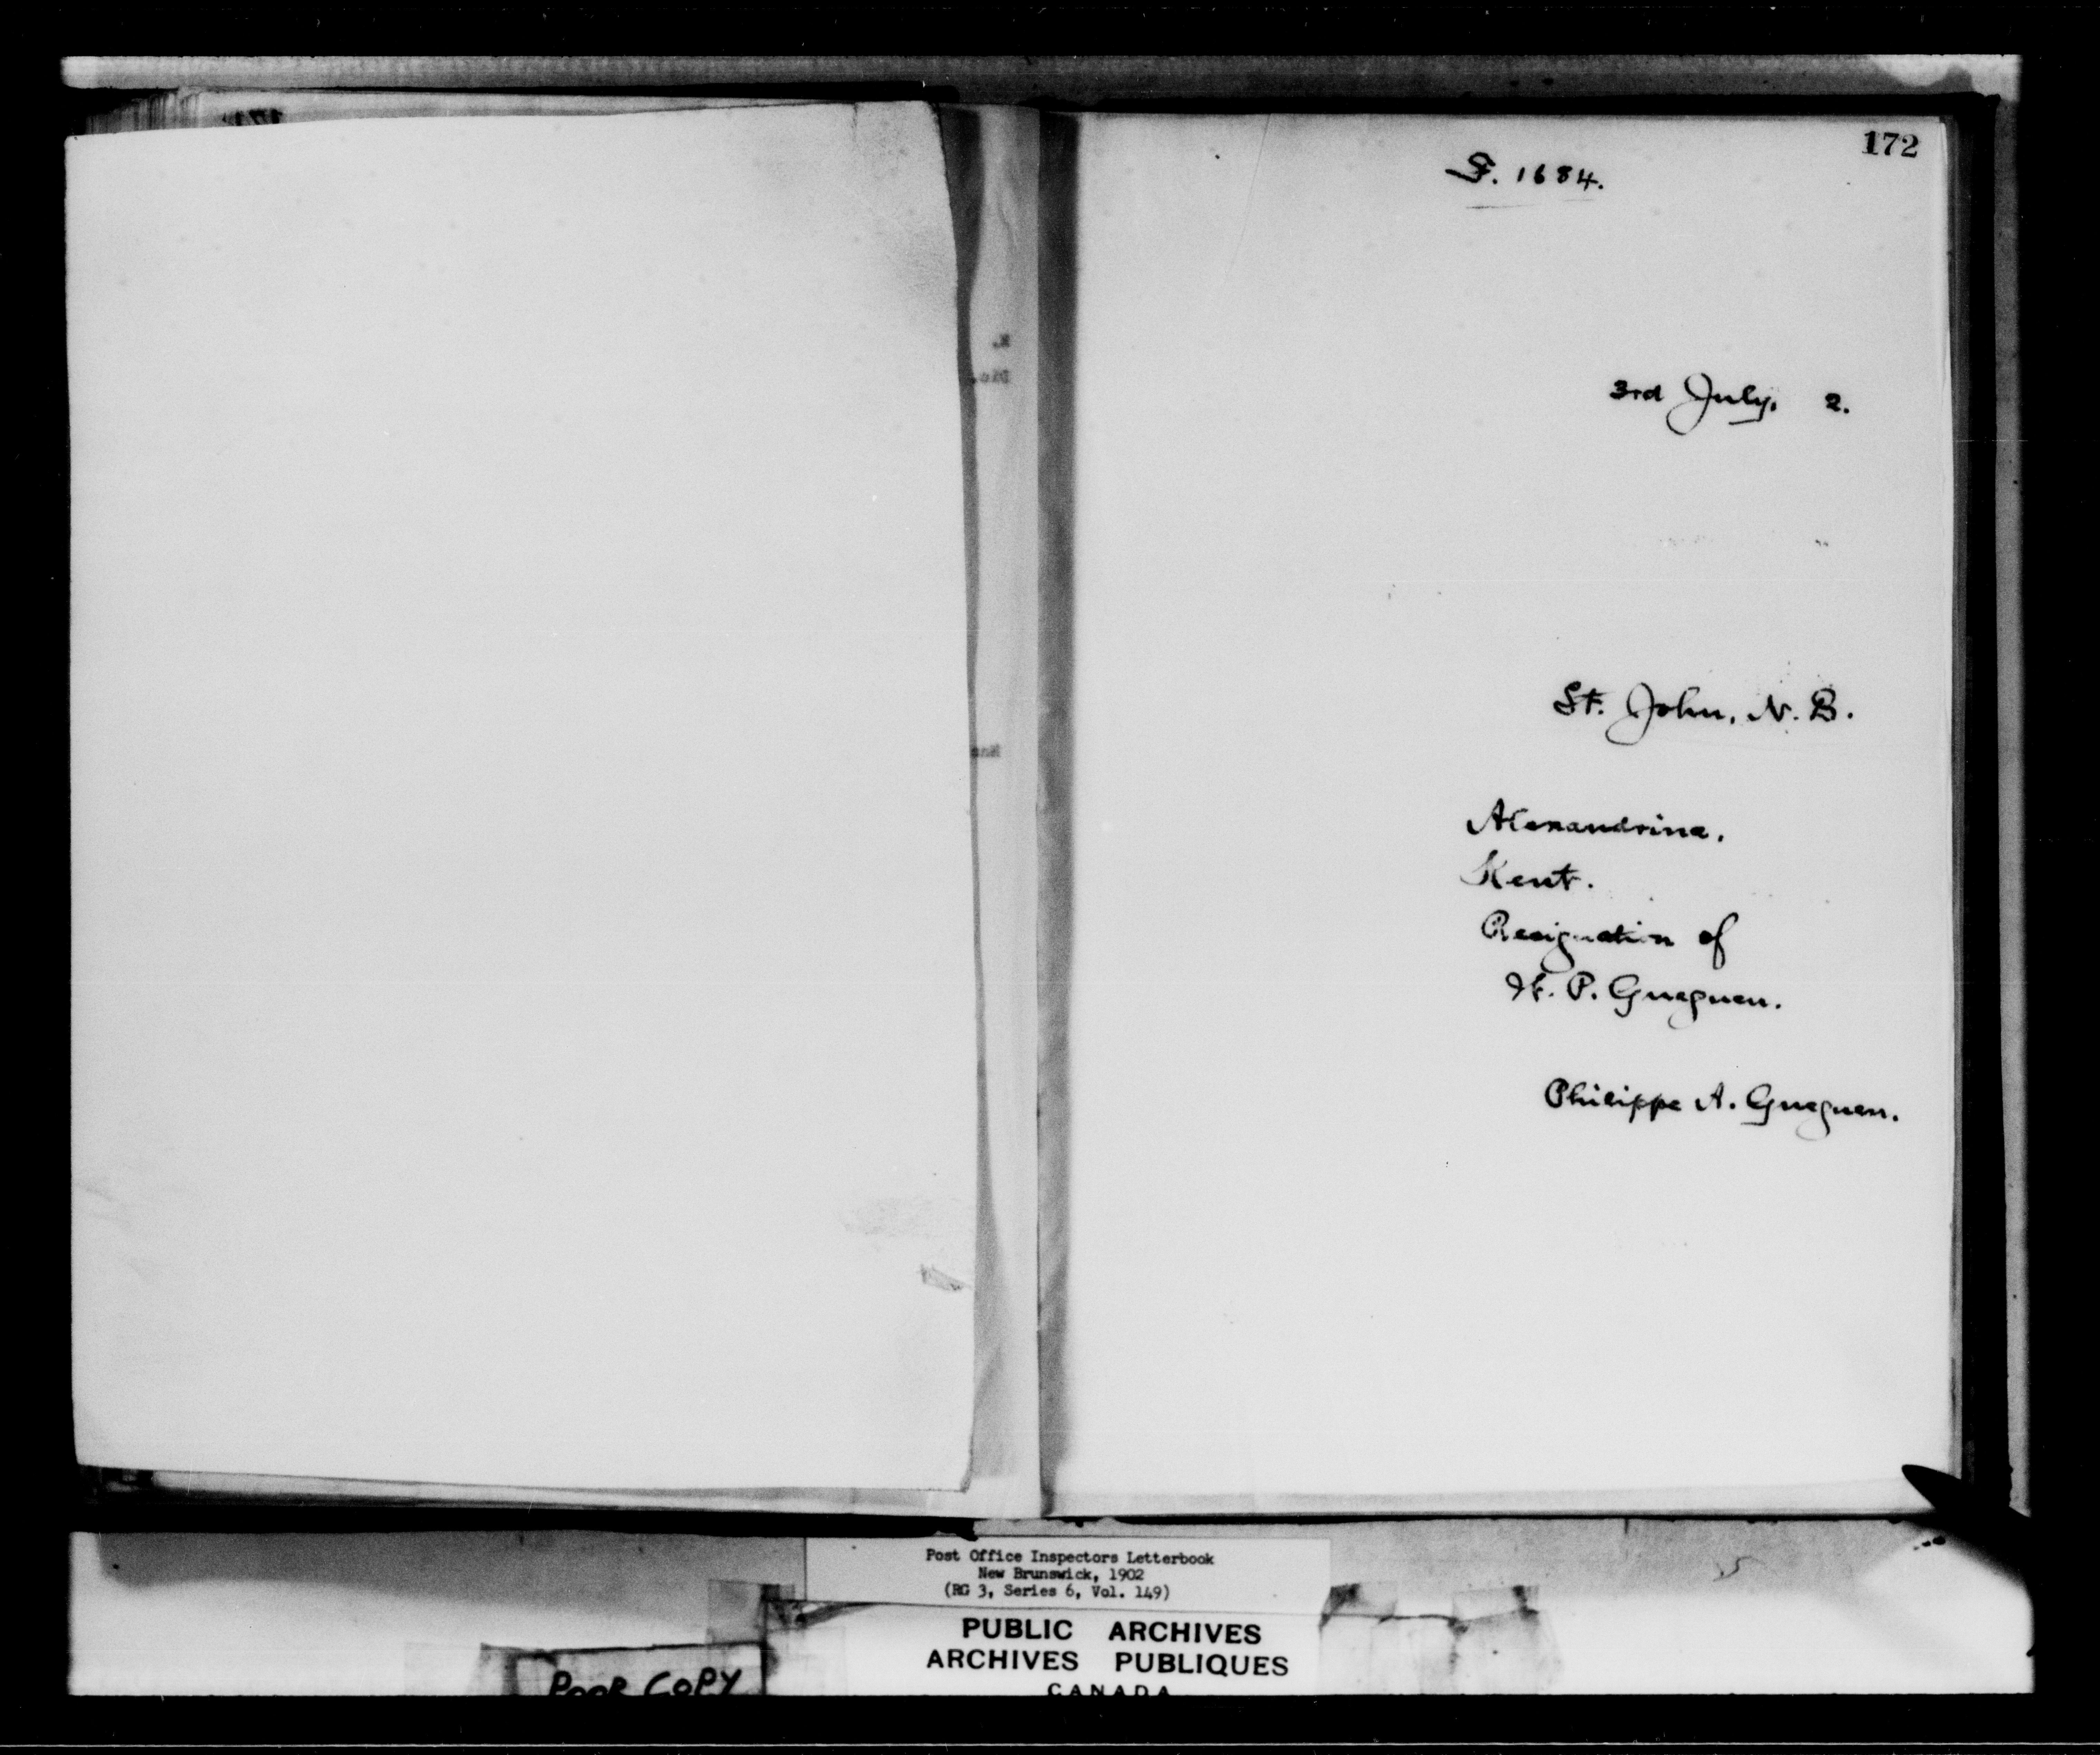 172
1684.
3rd July, 2.
St. John, N. B.
Alexandrina.
Kent.
Resignation of
H. P. Gueguen.
Philippe A. Gueguen.
Post Office Inspectors Letterbook
New Brunswick, 1902
(RG 3, Series 6, Vol. 149)
PUBLIC ARCHIVES
ARCHIVES PUBLIQUES
CANADA
POOR COPY